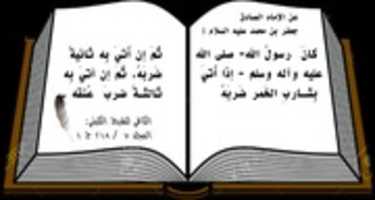 عن الإمام الصادق
جعفر بن محمد عليه السلام :
كانَ رسولُ الله- صلى الله
عليه وآله وسلم - إذا أتيَ
بِشاربِ الخَمرِ ضَربَهُ
ثُمَّ إن أتيَ بِه ثانيةً
ضَربَهُ، ثُم إن أتيَ بِه
ثالثةً ضَربَ عُنقه
الكافي
٧ / ٢١٨ ح ٤